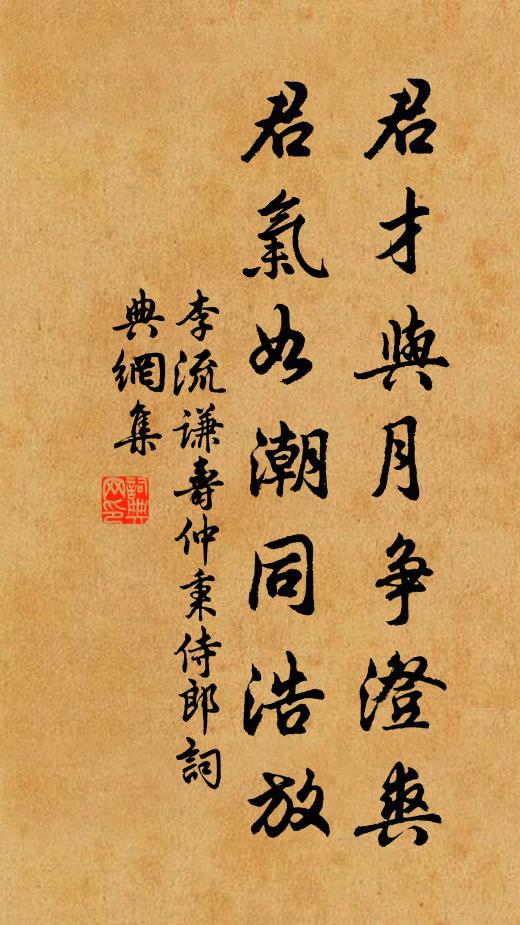 君才與月争澄爽
君氣如潮同浩放
李流謙壽仲秉侍郎詞
典網集
詞典網印